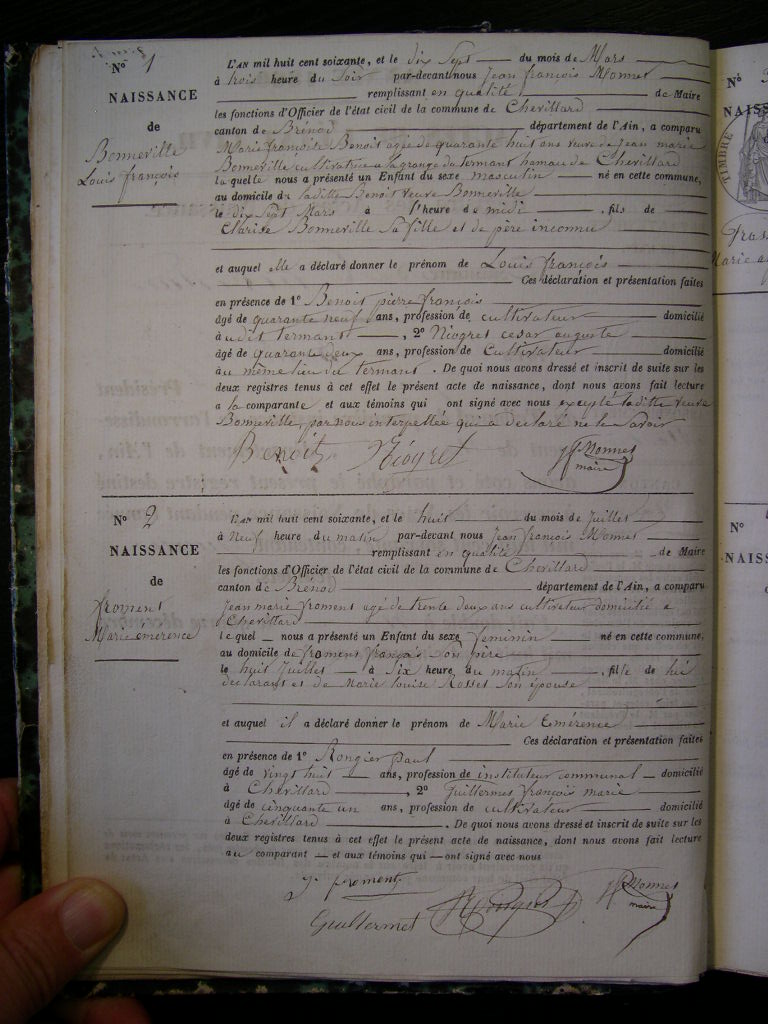 N° 1
NAISSANCE
de
Bonneville
Louis françois
L'AN mil huit cent soixante, et le dix sept du mois de Mars
à trois heure du soir par-devant nous Jean françois Monnet
remplissant en qualité de Maire
les fonctions d'Officier de l'état civil de la commune de Chevillard
canton de Brénod département de l'Ain, a comparu
Marie françoise Benoit agée de quarante huit ans veuve de jean marie
Bonneville cultivatrice a la grange du termant hameau de Chevillard
laquelle nous a présenté un Enfant du sexe masculin né en cette commune,
au domicile de laditte Benoit veuve Bonneville
le dix Sept Mars à l'heure de midi, fils de
Clarise Bonneville Sa fille et de père inconnu
et auquel elle a déclaré donner le prénom de Louis françois
Ces déclaration et présentation faites
en présence de 1° Benoit pierre françois
âgé de quarante neuf ans, profession de cultivateur domicilié
à udit termant, 2° Niogret cesar auguste
âgé de quarante deux ans, profession de Cultivateur domicilié
à u même lieu du termant. De quoi nous avons dressé et inscrit de suite sur les
deux registres tenus à cet effet le présent acte de naissance, dont nous avons fait lecture
a la comparante et aux témoins qui ont signé avec nous excepté laditte veuve
Bonneville, par nous interpellée qui a déclaré ne le Savoir
Benoit Niogret JF Monnet
maire
N° 2
NAISSANCE
de
froment
Marie émérence
L'AN mil huit cent soixante, et le huit du mois de Juillet
à Neuf heure du matin par-devant nous Jean françois Monnet
remplissant en qualité de Maire
les fonctions d'Officier de l'état civil de la commune de Chevillard
canton de Brénod département de l'Ain, a comparu
Jean marie froment agé de trente deux ans cultivateur domicilié a
Chevillard
lequel nous a présenté un Enfant du sexe féminin né en cette commune,
au domicile de froment françois Son père
le huit Juillet à Six heure du matin, fille de lui
déclarant et de Marie louise Rosset Son épouse
et auquel il a déclaré donner le prénom de Marie Emérence
Ces déclaration et présentation faites
en présence de 1° Rongier paul
âgé de vingt huit ans, profession de instituteur communal domicilié
à Chevillard, 2° Guillermet françois marie
âgé de cinquante un ans, profession de cultivateur domicilié
à Chevillard. De quoi nous avons dressé et inscrit de suite sur les
deux registres tenus à cet effet le présent acte de naissance, dont nous avons fait lecture
au comparant et aux témoins qui ont signé avec nous
J. froment JF Monnet
maire
Guillermet Rongier
N°
TIMBRE
N°